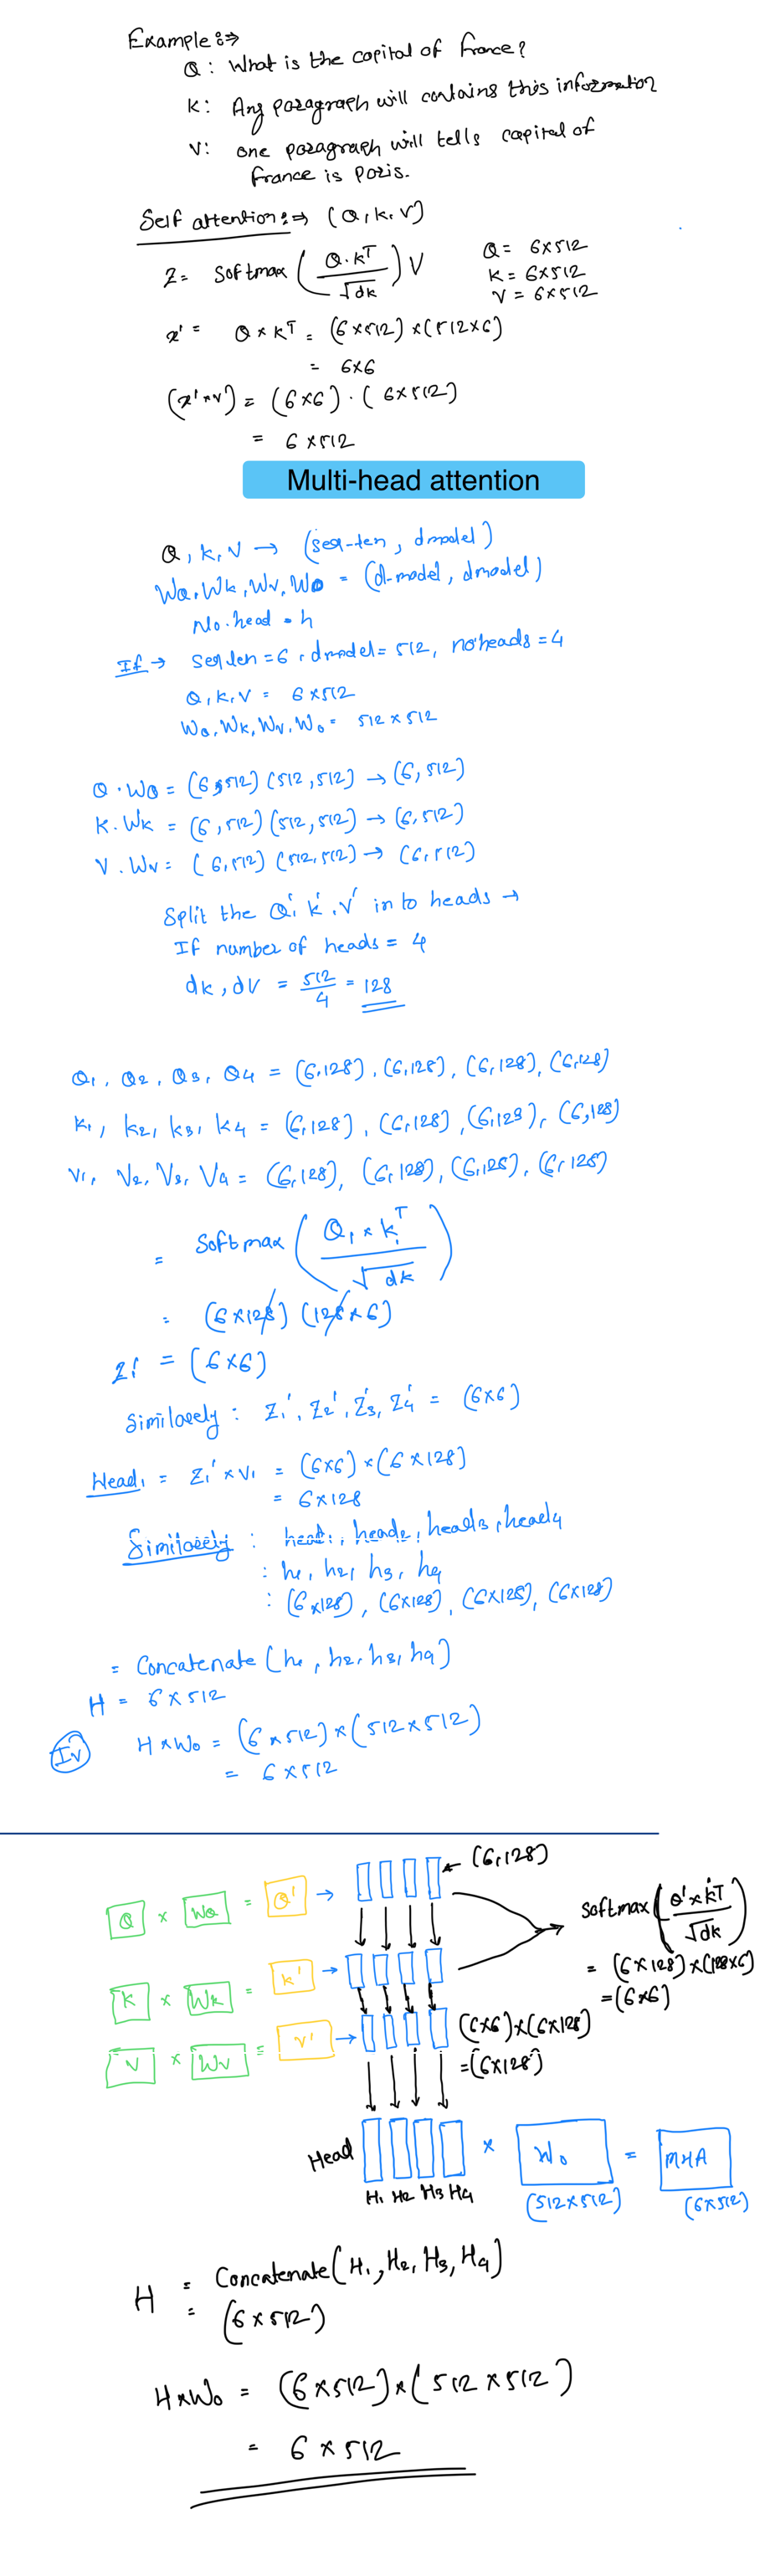 Example :⇒
Q : What is the capital of france?
K : Any paragraph will contains this information
V : one paragraph will tells capital of
france is paris.
Self attention :⇒ (Q, K, V)
Z = Softmax ( Q·K^T / √dk ) V
Q = 6×512
K = 6×512
V = 6×512
z' = Q × K^T = (6×512) × (512×6)
= 6×6
(z' × v') = (6×6) · (6×512)
= 6×512
Multi-head attention
Q, K, V → (seq-len, dmodel)
WQ, WK, WV, WO = (d-model, dmodel)
No. head = h
If → Seqlen = 6, dmodel = 512, no heads = 4
Q, K, V = 6×512
WQ, WK, WV, WO = 512×512
Q · WQ = (6,512) (512,512) → (6,512)
K · WK = (6,512) (512,512) → (6,512)
V · WV = (6,512) (512,512) → (6,512)
Split the Q', K', V' in to heads →
If number of heads = 4
dk, dV = 512/4 = 128
Q1, Q2, Q3, Q4 = (6,128), (6,128), (6,128), (6,128)
K1, K2, K3, K4 = (6,128), (6,128), (6,128), (6,128)
V1, V2, V3, V4 = (6,128), (6,128), (6,128), (6,128)
= Softmax ( Q1 × K1^T / √dk )
= (6×128) (128×6)
Z1' = (6×6)
Similarely : Z1', Z2', Z3', Z4' = (6×6)
Head1 = Z1' × V1 = (6×6) × (6×128)
= 6×128
Similarely : head1, head2, head3, head4
: h1, h2, h3, h4
: (6×128), (6×128), (6×128), (6×128)
= Concatenate (h1, h2, h3, h4)
H = 6×512
IV H × WO = (6×512) × (512×512)
= 6×512
(6,128)
Q × WQ = Q' →
Softmax ( Q' × K'^T / √dk )
= (6×128) × (128×6)
= (6×6)
K × WK = K' →
V × WV = V' →
(6×6) × (6×128)
= (6×128)
Head × WO = MHA
H1 H2 H3 H4 (512×512) (6×512)
H = Concatenate (H1, H2, H3, H4)
= (6×512)
H×WO = (6×512) × (512×512)
= 6×512